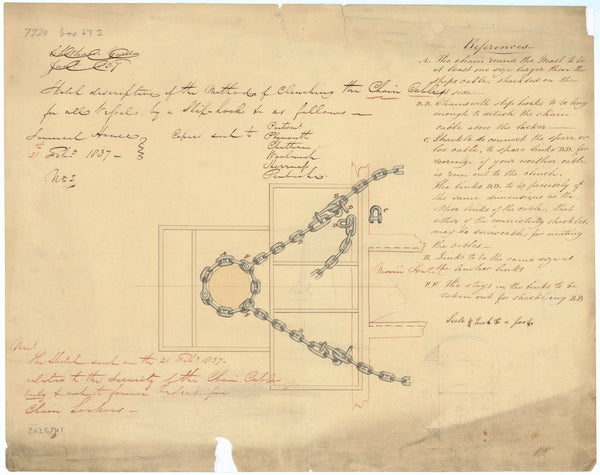 7720 box 67 I
Sketch descriptive of the Method of Clenching the Chain Cables
for all Vessels, by a Slip hook to as follows —
Copies sent to
Portsmo
Plymouth
Chatham
Woolwich
Sheerness
Pembroke
21 Feby 1837 —
No 2
References
A. The chain round the Mast to be
at least one size larger than the
ships cable, shackled on the
side.
B.B. Chainswith slip hooks to be long
enough to detach the chain
cable above the locker
C. Shackle to connect the spare or
lee cable, to spare links D.D. for
veering, if your weather cable
is run out to the clench.
The links D.D. to be precisely of
the same dimensions as the
other links of the cable, that
either of the connecting shackles
may be serviceable for uniting
the cables —
E. Links to be the same size as
the anchor links
F.F. The stays in the links to be
taken out for shackling B.B
Scale ½ Inch to a foot
Main Hatch
Memo
The Sketch sent on the 21 Feby 1837.
relates to the security of the Chain Cables
only & not to former Orders for
Chain Lockers —
ZAZ6761